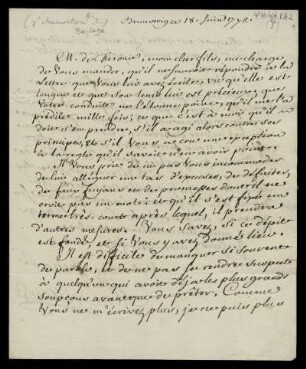 Brunswig ce 18. Juin 1778.
M. de Feronce, mon cher fils, me charge
de Vous mander, qu'il ne sauroit répondre à la
Lettre que Vous lui avez écrite, vû qu'elle est
longue et que son tems lui est précieux; que
Votre conduite ne l'étonne point, qu'il me l'a
prédite mille fois; et que c'est à moi qu'il a
dois s'en prendre, s'il a agi alors contre ses
principes, et s'il Vous a une exception
à la regle qu'il savoit n'en avoir point.
Il Vous prie de ne pas Vous incommoder
de lui alléguer un tas d'excuses, de défaites,
de faux fuyans et de promesses dont il ne
croit pas un mot: et qu'il s'est fixé un
terme très-court après lequel, il prendra
d'autres mesures. Vous savez, si ce dépit
est fondé, et si Vous y avez donné lieu.
Il est difficile de manquer si souvent
de parole, et de ne pas se rendre suspect
à quelqu'un qui avoit déja les plus grands
soupçons avant que de prêter. Comme
Vous ne m'écrivez plus, je ne puis plus